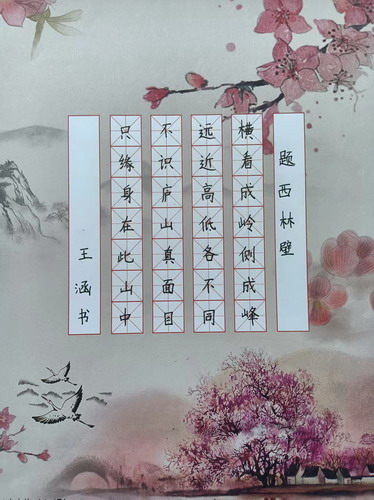 题西林壁
横看成岭侧成峰
远近高低各不同
不识庐山真面目
只缘身在此山中
王涵书